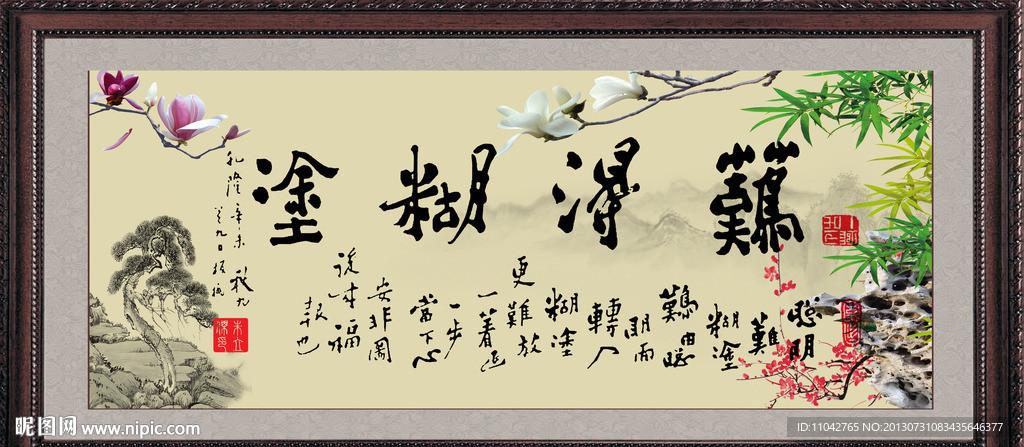 難得糊塗
聰明
難
糊塗
難由聰
明而
轉入
糊塗
更難放
一著退
一步
當下心
安非圖
後来福
報也
乾隆辛未
秋九
月九日板橋
昵图网 www.nipic.com
ID:11042765 NO:20130731083435646377